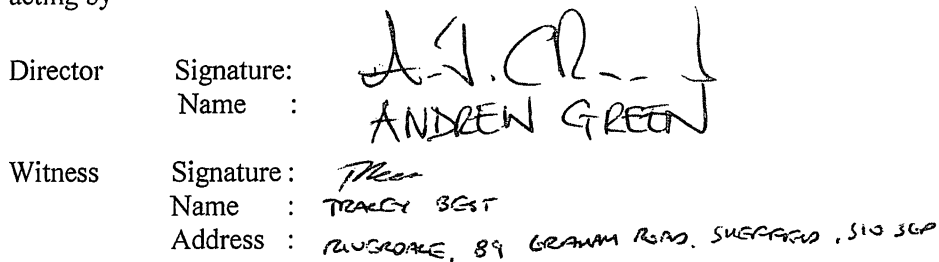 acting by
Director Signature: A.J. Green
Name : ANDREW GREEN
Witness Signature :
Name : TRACEY BEST
Address : RIVERDALE, 89 GRAHAM ROAD, SHEFFIELD, S10 3GP